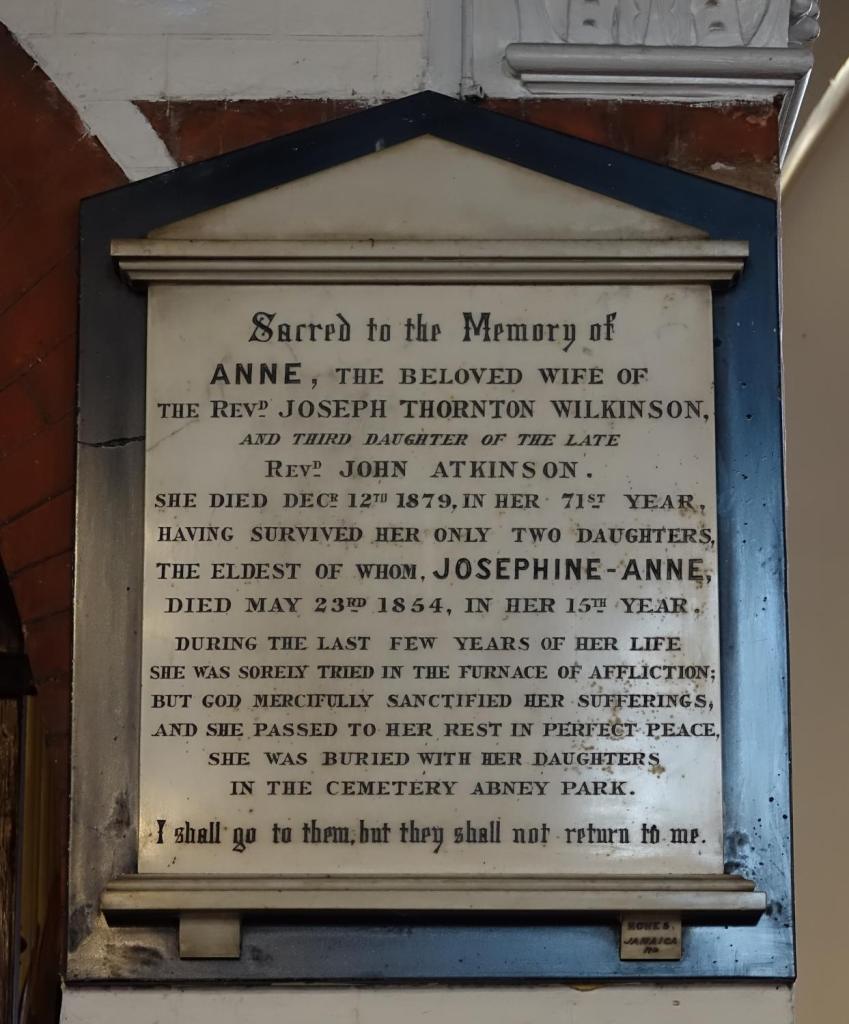 Sacred to the Memory of
ANNE, THE BELOVED WIFE OF
THE REVD JOSEPH THORNTON WILKINSON,
AND THIRD DAUGHTER OF THE LATE
REVD JOHN ATKINSON.
SHE DIED DECR 12TH 1879, IN HER 71ST YEAR,
HAVING SURVIVED HER ONLY TWO DAUGHTERS,
THE ELDEST OF WHOM, JOSEPHINE-ANNE,
DIED MAY 23RD 1854, IN HER 15TH YEAR.
DURING THE LAST FEW YEARS OF HER LIFE
SHE WAS SORELY TRIED IN THE FURNACE OF AFFLICTION;
BUT GOD MERCIFULLY SANCTIFIED HER SUFFERINGS,
AND SHE PASSED TO HER REST IN PERFECT PEACE,
SHE WAS BURIED WITH HER DAUGHTERS
IN THE CEMETERY ABNEY PARK.
I shall go to them, but they shall not return to me.
JAMAICA
RD